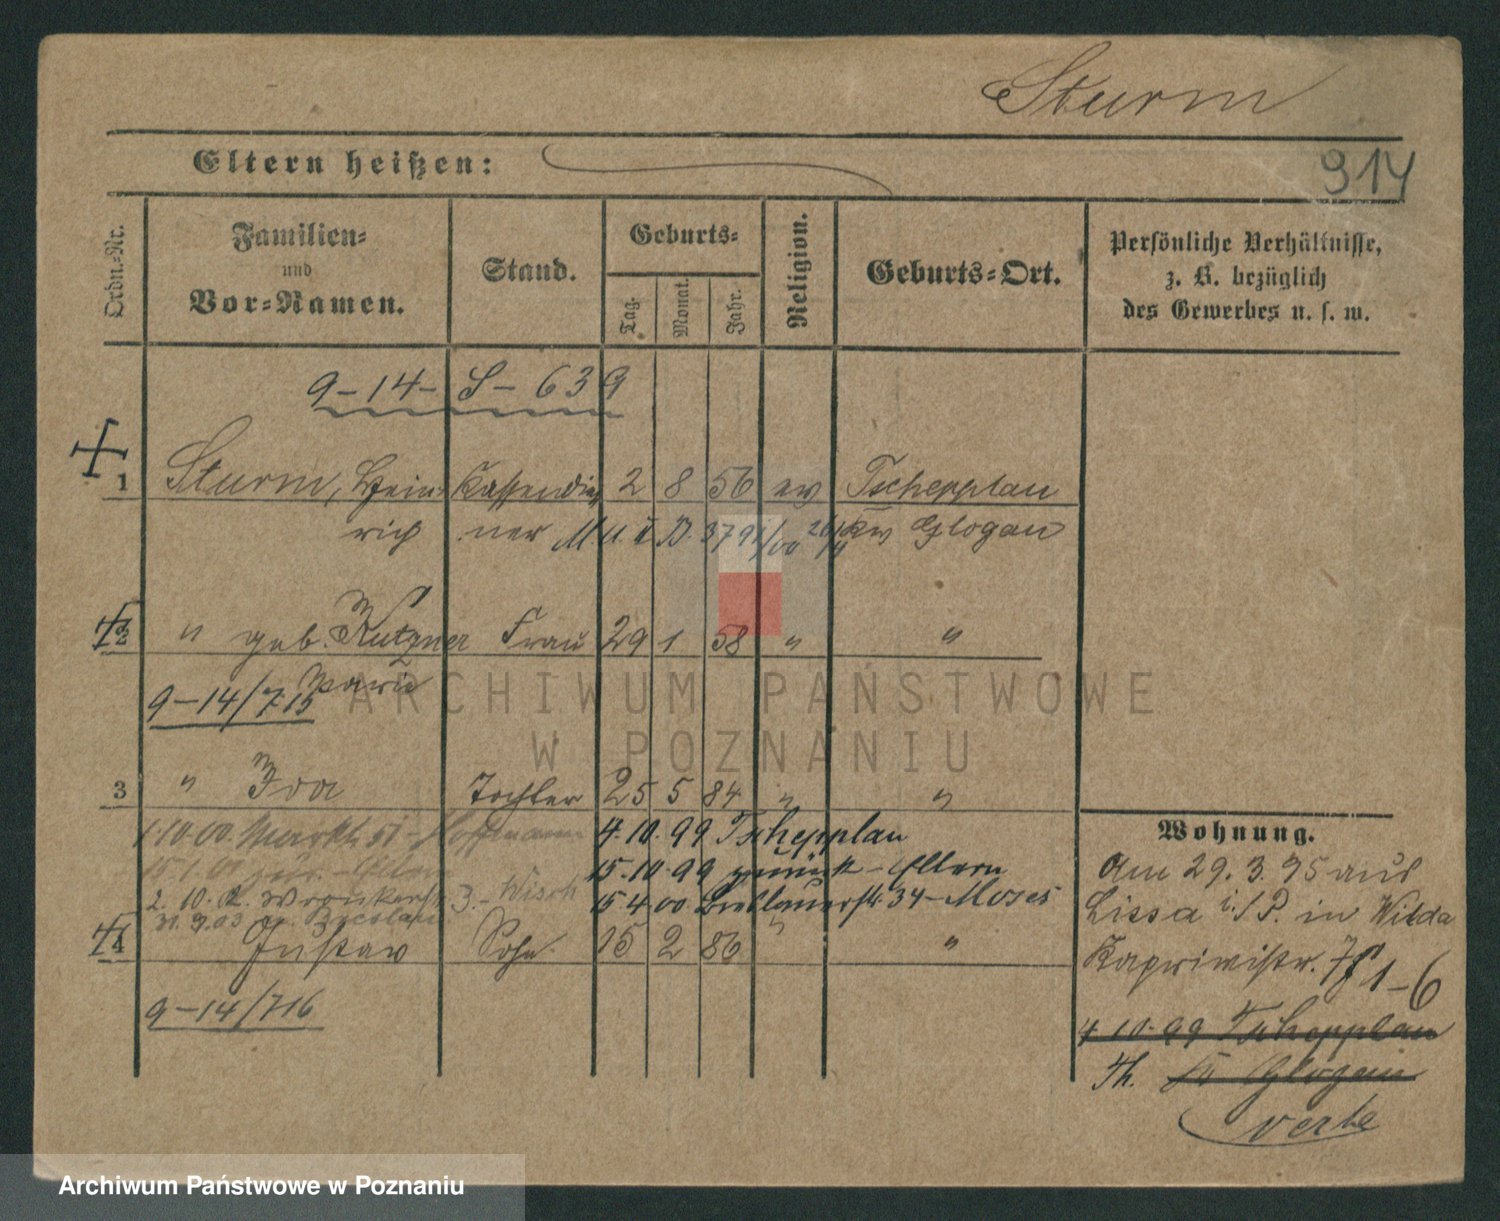 Sturm
Eltern heißen:
914
Ordn.-Nr.
Familien-
und
Vor-Namen.
Stand.
Geburts-
Tag.
Monat.
Jahr.
Religion.
Geburts-Ort.
Persönliche Verhältnisse,
z. B. bezüglich
des Gewerbes u. s. w.
9-14- S-639
1 Sturm, Hein- Kassendie- 2 8 56 ev Tschepplau
rich ner M.U.II D. 3791/00 26/4 Kr Glogau
2 " geb. Kutzner Frau 29 1 58 " "
Marie
9-14/715
ARCHIWUM PAŃSTWOWE
W POZNANIU
3 " Ida Tochter 25 5 84 " "
1.10.00. Markt 51 - Hoffmann 4.10.99 Tschepplau
15.1.01 zur. - Eltern 15.10.99 zurück - Eltern
2. 10. Wronkerstr. 3. - 15 4 00 Breslauerstr. 34 - Moses
31. 9.03
4 Gustav Sohn 15 2 86 " "
9-14/716
Wohnung.
Am 29.3.95 aus
Lissa i/P. in Wilda
Kaprivistr. 1-6
4 10.99 Tschepplau
Kr Glogau
Archiwum Państwowe w Poznaniu